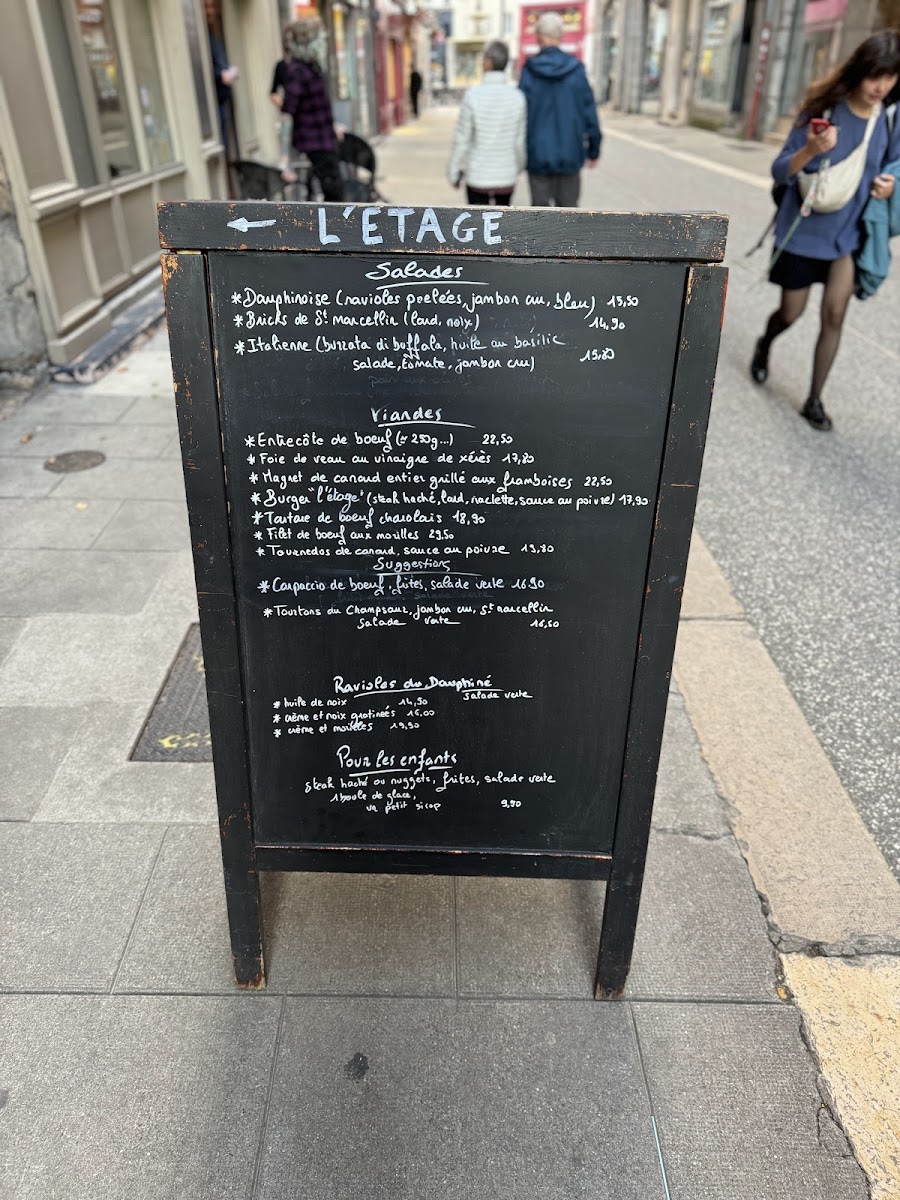 ← L'ÉTAGE
Salades
*Dauphinoise (ravioles poelées, jambon cru, bleu) 15,50
*Bricks de St marcellin (lard, noix) 14,90
*Italienne (burrata di buffala, huile au basilic
salade, tomate, jambon cru) 15,80
Viandes
*Entrecôte de boeuf (≈ 250g...) 22,50
*Foie de veau au vinaigre de xérès 17,80
*Magret de canard entier grillé aux framboises 22,50
*Burger "l'étage" (steak haché, lard, raclette, sauce au poivre) 17,90
*Tartare de boeuf charolais 18,90
*Filet de boeuf aux morilles 29,50
*Tournedos de canard, sauce au poivre 19,80
Suggestions
*Carpaccio de boeuf, frites, salade verte 16,90
*Tourtons du Champsaur, jambon cru, St marcellin
salade verte 16,50
Ravioles du Dauphiné
salade verte
*huile de noix 14,50
*crème et noix gratinées 16,00
*crème et morilles 19,50
Pour les enfants
steak haché ou nuggets, frites, salade verte
1 boule de glace,
un petit sirop 9,90